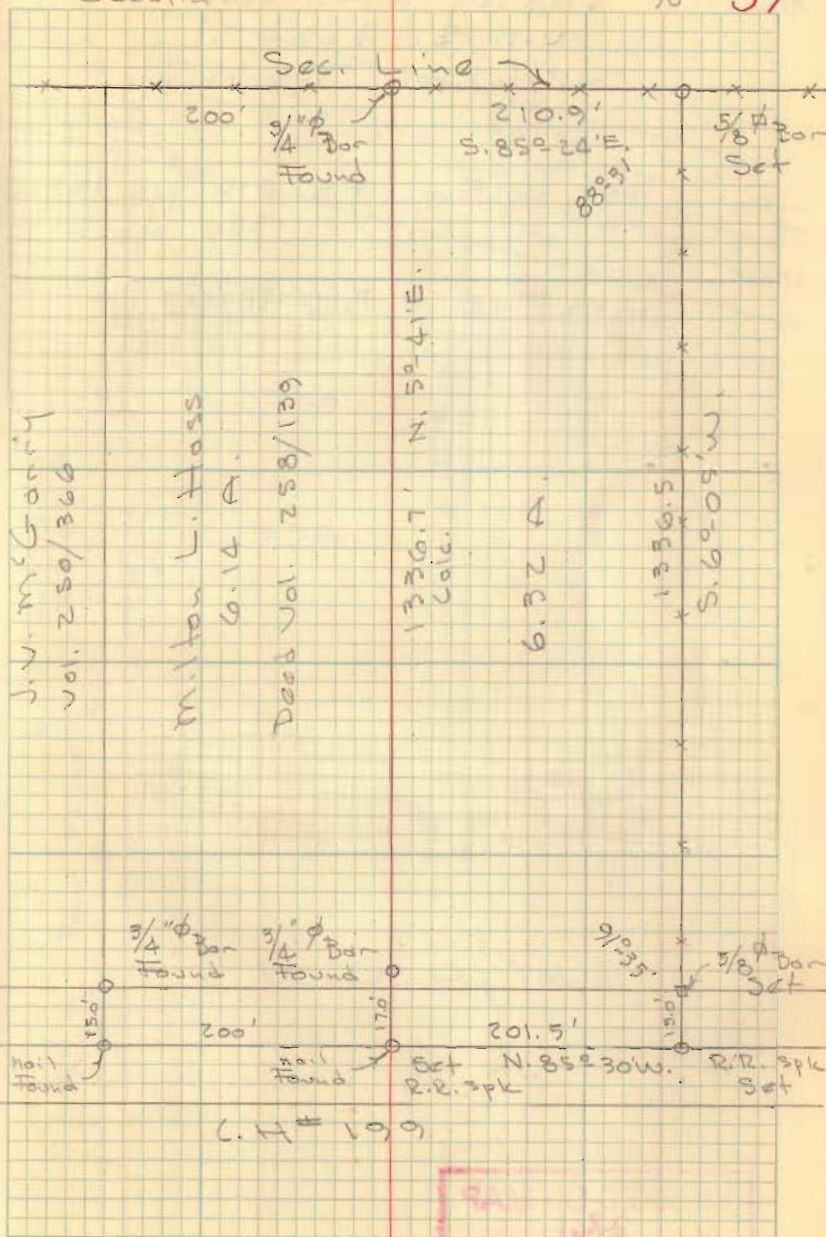 37
Sec. Line
200'
3/4"ϕ Bar
Found
210.9'
S. 85º-24'E.
88º-31'
5/8"ϕ Bar
Set
J.V. McGarry
Vol. 250/366
Milton L. Hoss
6.14 A.
Deed Vol. 258/139
1336.7' N. 5º-41'E.
Calc.
6.32 A.
1336.5
S. 6º-05'W.
3/4"ϕ Bar
Found
3/4"ϕ Bar
Found
91º-35'
5/8"ϕ Bar
Set
15.0'
200'
17.0'
201.5'
15.0'
nail
Found
nail
Found
Set
R.R. spk
N. 85º-30'W.
R.R. spk
Set
C. H# 199
MAP